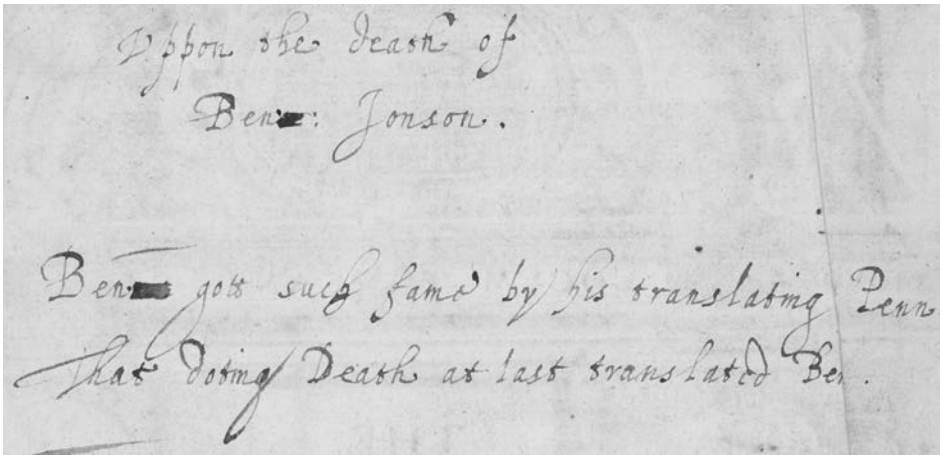 Vppon the death of
Ben: Jonson.
Ben gott such fame by his translating Penn
That doting Death at last translated Ben.